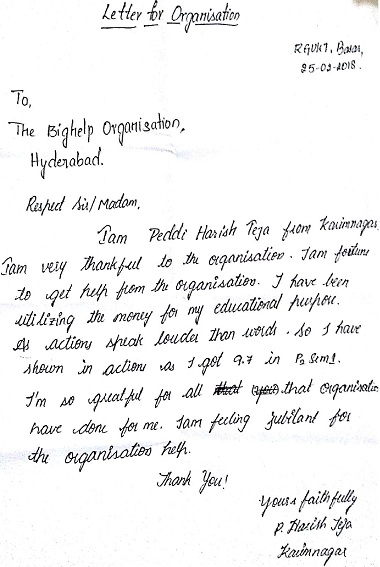 Letter for Organisation
RGUKT, Basar,
25-02-2018.
To,
The Bighelp Organisation,
Hyderabad.
Resped Sir/Madam,
Iam Peddi Harish Teja from Karimnagar
Iam very thankful to the organisation. Iam fortune
to get help from the organisation. I have been
utilizing the money for my educational purpose.
As actions speak louder than words. so I have
shown in action as I got 9.7 in P2 Sem1.
I'm so greatful for all that you that organisation
have done for me. Iam feeling jubilant for
the organisation help.
Thank You!
Yours faithfully
P. Harish Teja
Karimnagar